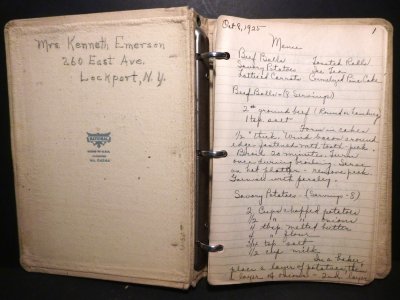 Mrs. Kenneth Emerson
260 East Ave.
Lockport, N.Y.
NATIONAL
Oct 8, 1925
1
Menu
Beef Balls Toasted Rolls
Savory Potatoes Ice Tea
Latticed Carrots Caramelized Pine Cake
Beef Balls - (8 Servings)
2 # ground beef (Round or Hamburg)
1 tsp salt
Form in cakes
1/2" thick. Wind bacon around
edge fastened with tooth-pick.
Broil 20 minutes. Turn
once during broiling. Serve
on hot platter - remove picks
Garnish with parsley.
Savory Potatoes - (Servings - 8)
2 Cups chopped potatoes
1/2 " " onions
1/4 cup melted butter
" flour
3/4 tsp salt
1/2 cup milk
In a baker
place a layer of potatoes, then
layer of onions - 2nd layer